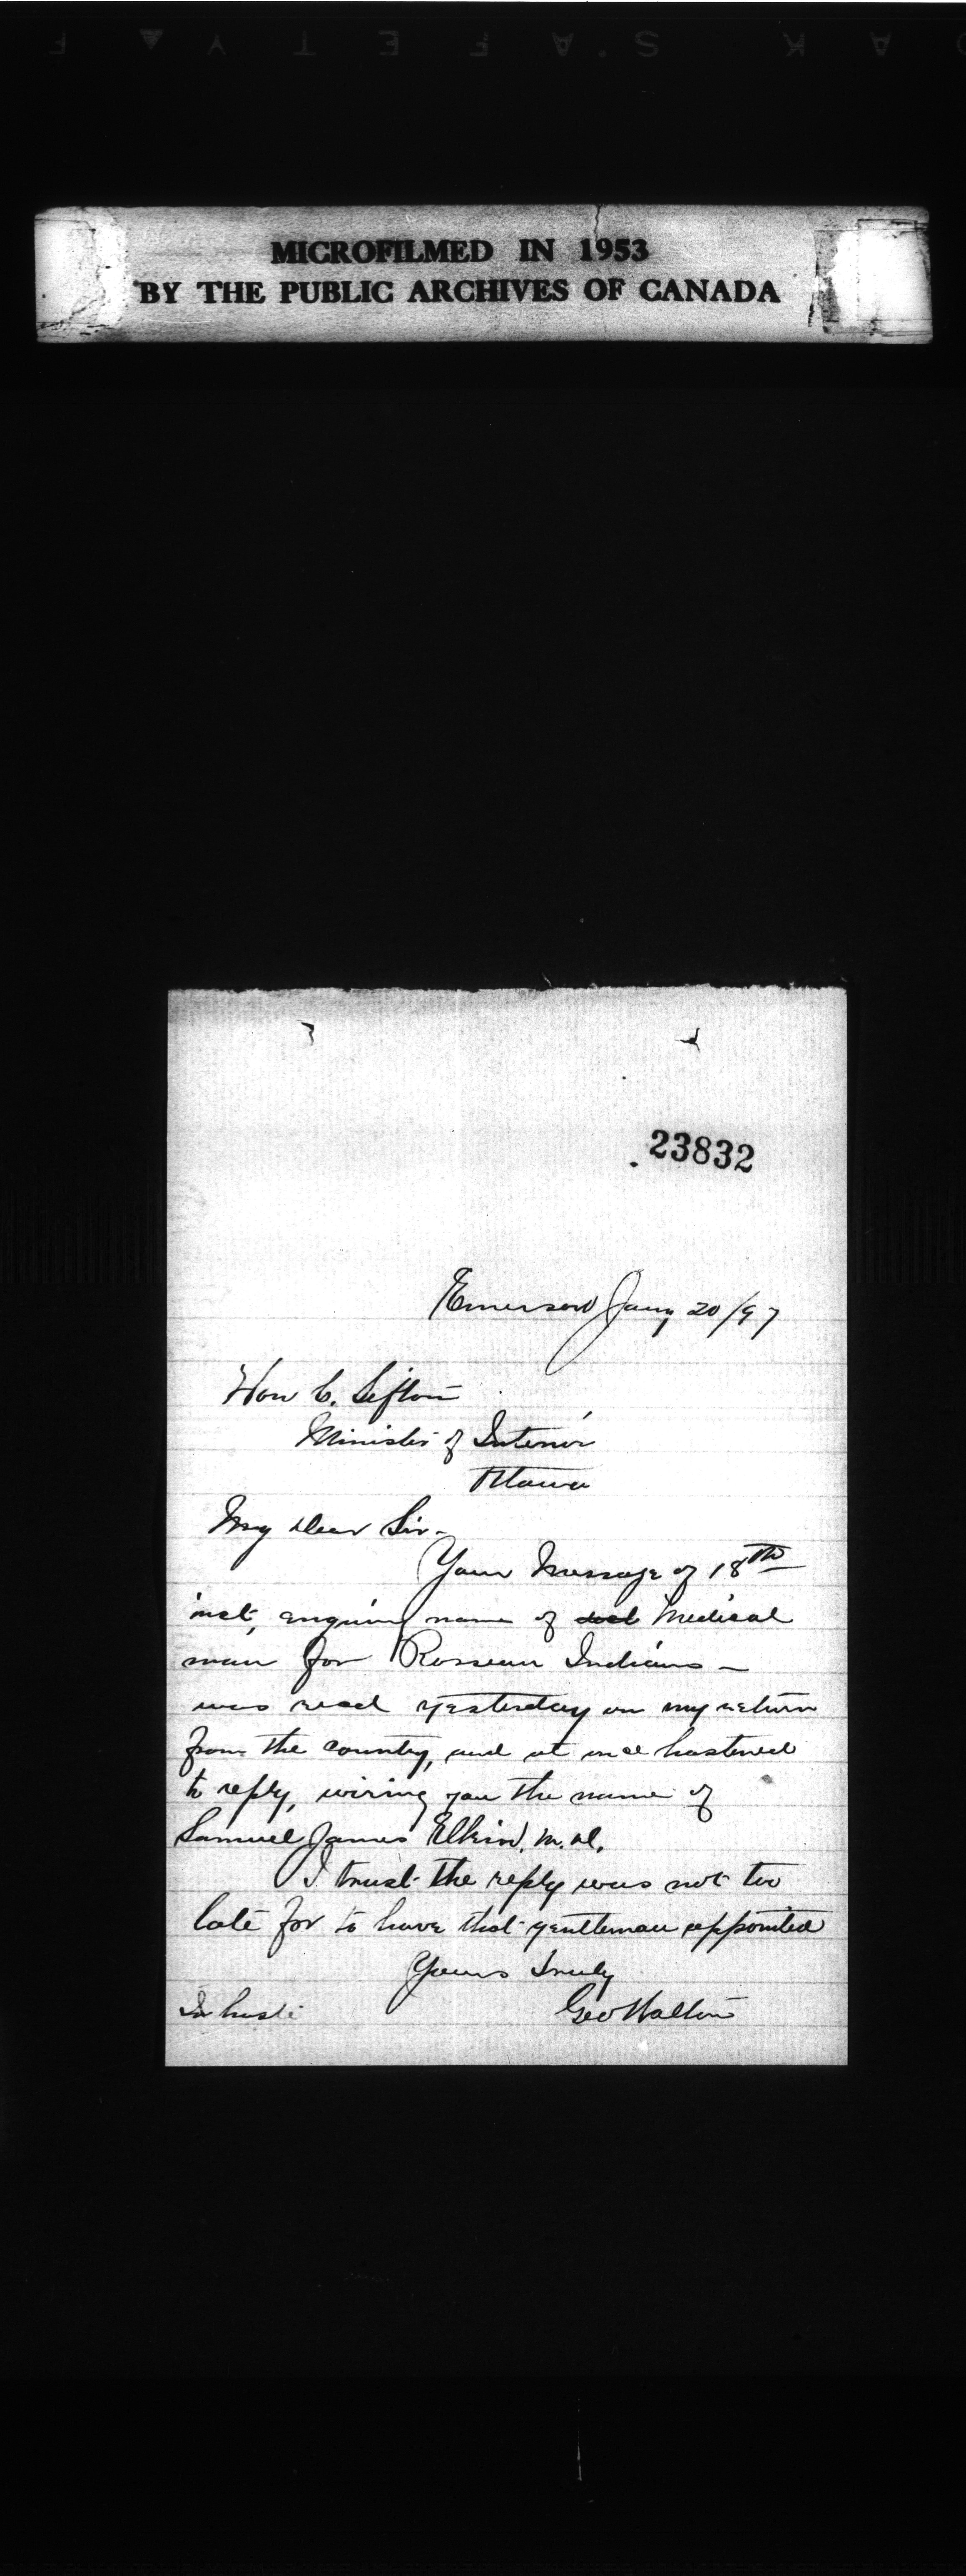 KODAK SAFETY
MICROFILMED IN 1953
BY THE PUBLIC ARCHIVES OF CANADA
23832
Emerson Jany 20/97
Hon C. Sifton
Minister of Interior
Ottawa
My Dear Sir-
Your Message of 18th
inst, enquiring name of Medical
man for Rosseau Indians -
was read yesterday on my return
from the country, and at once hastened
to reply, wiring you the name of
Samuel James Elkin. M.D.
I trust the reply was not too
late for to have that gentleman appointed
Yours Truly
In haste Geo Walton